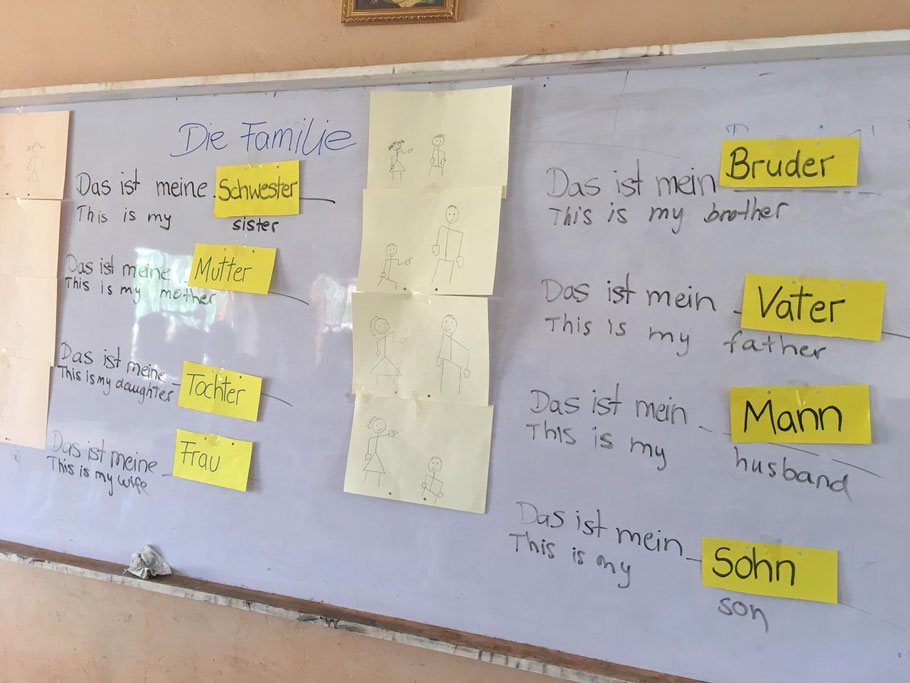 Die Familie
Das ist meine Schwester
This is my sister
Das ist meine Mutter
This is my mother
Das ist meine Tochter
This is my daughter
Das ist meine Frau
This is my wife
Das ist mein Bruder
This is my brother
Das ist mein Vater
This is my father
Das ist mein Mann
This is my husband
Das ist mein Sohn
This is my son